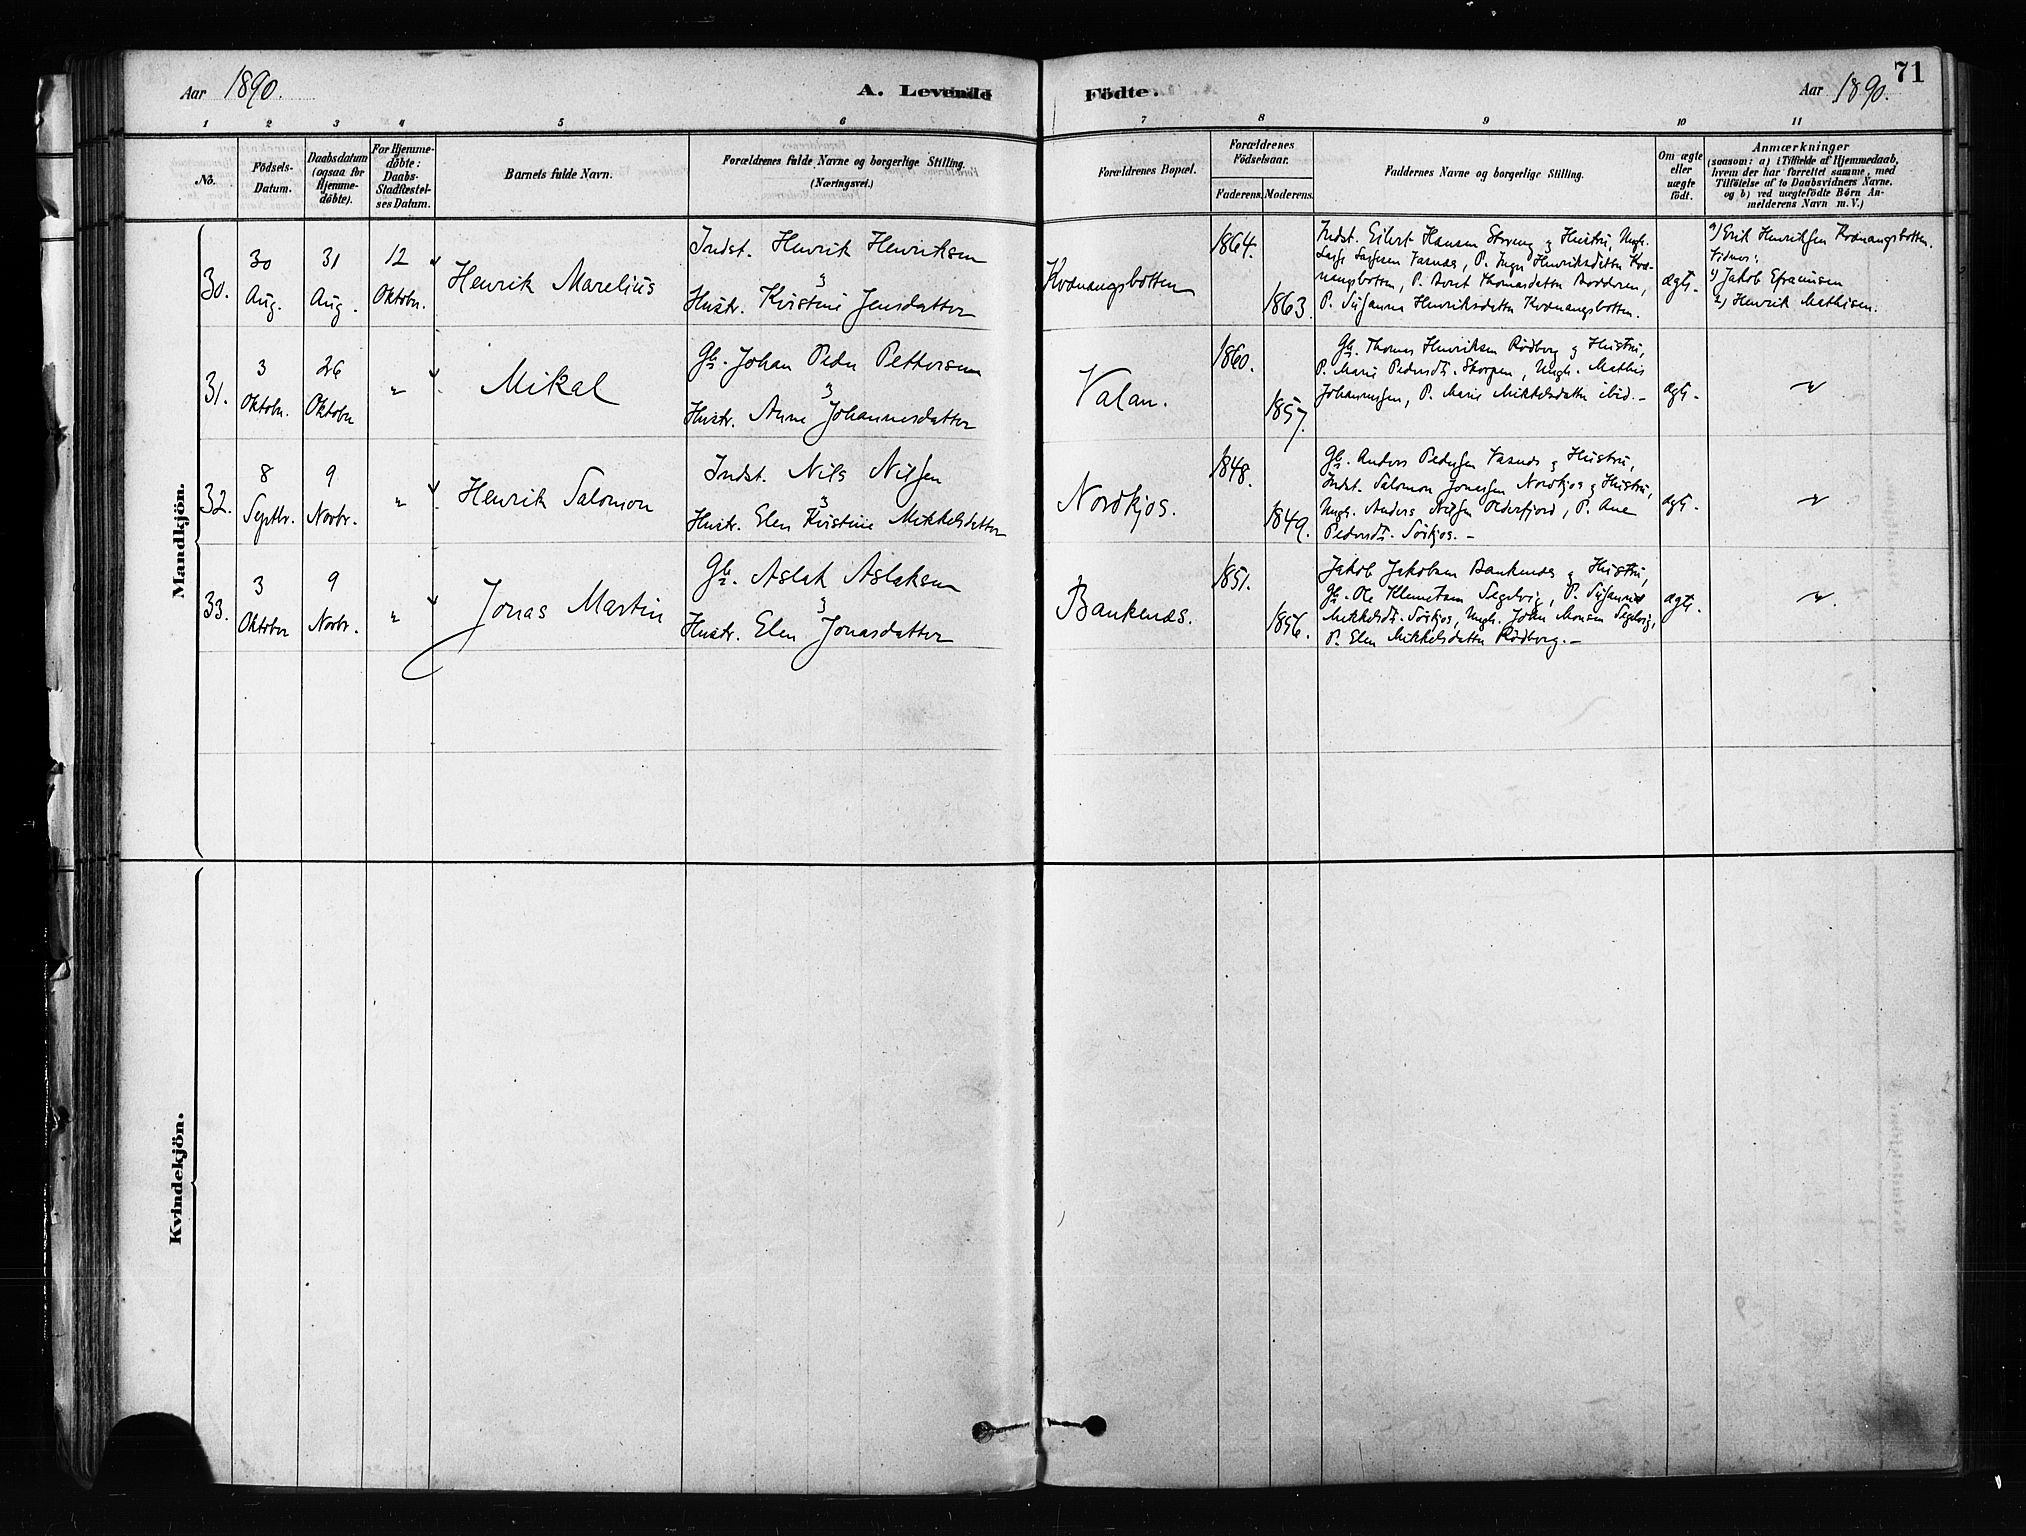 Aar 1890.
A. Levende Födte.
Aar 1890.
71
1 2 3 4 5 6 7 8 9 10 11
No.
Födsels-
Datum.
Daabsdatum
(ogsaa for
Hjemme-
döbte).
For Hjemme-
döbte:
Daabs-
Stadfæstel-
ses Datum.
Barnets fulde Navn.
Forældrenes fulde Navne og borgerlige Stilling.
(Næringsvei.)
Forældrenes Bopæl.
Forældrenes
Födselsaar.
Faderens. Moderens.
Faddernes Navne og borgerlige Stilling.
Om ægte
eller
uægte
födt.
Anmærkninger
(saasom: a) i Tilfælde af Hjemmedaab,
hvem der har forrettet samme, med
Tilföielse af to Daabsvidners Navne,
og b) ved uægtefödte Börn An-
melderens Navn m. V.)
Mandkjön.
30.
30
Aug.
31
Aug.
12
Oktobr.
Henrik Marelius
Indst. Henrik Henriksen
&
Hustr. Kristine Jensdatter
Kvænangsbotten
1864.
1863.
Indst. Eilert Hansen Storeng & Hustru, Ungk.
Hansen P. Inger Henriksdatter Kvæ-
nangsbotten, P. Beret Thomasdatter
P. Susanna Henriksdatter Kvænangsbotten.
ægte.
a) Erik Henriksen Kvænangsbotten.
Vidner:
1) Jakob Efraimsen
2) Henrik Mathisen.
31.
3
Oktobr.
26
Oktobr
"
Mikal
Gb. Johan Peder Pettersen
&
Hustr. Anne Johannesdatter
Valan.
1860.
1857.
Gb. Thomas Henriksen Rödberg & Hustru,
P. Marie Pedersdtr. Skorpen, Ungk. Mathis
Johannesen, P. Marie Mikkelsdatter ibid. –
ægte.
"
32.
8
Septbr.
9
Novbr.
"
Henrik Salomon
Indst. Nils Nilsen
&
Hustr. Elen Kristine Mikkelsdatter
Nordkjos.
1848.
1849.
Gb. Anders Pedersen & Hustru,
Indst. Salomon Jonassen Nordkjos & Hustru,
Ungk. Anders Nilsen Olderfjord, P. Ane
Pedersdtr. Sörkjos. –
ægte.
"
33.
3
Oktober
9
Novbr.
"
Jonas Martin
Gb. Aslak Aslaksen
&
Hustr. Elen Jonasdatter
Bankenæs.
1851.
1856.
Jakob Jakobsen Bankenæs & Hustru,
Gb. Ole Klemetsen Segelvig, P. Susanna
Mikkelsdtr. Sörkjos, Ungk. John Monsen Segelvig,
P. Elen Mikkelsdatter Rödberg. –
ægte.
"
Kvindekjön.